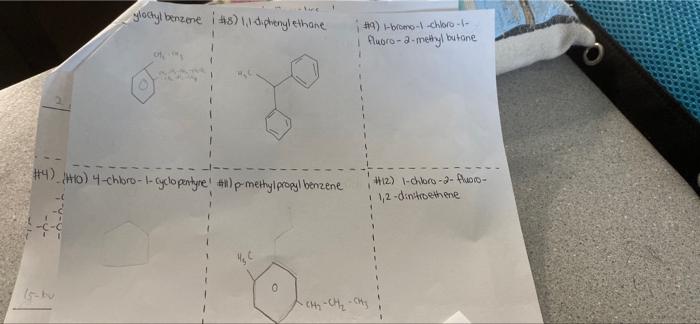 yloctyl benzene
#8) 1,1-diphenyl ethane
#9) 1-bromo-1-chloro-1-
fluoro-2-methyl butane
H₃C
2
#4)
#10) 4-chloro-1-cyclopentyne
#11) p-methylpropyl benzene
#12) 1-chloro-2-fluoro-
1,2-dinitroethene
-C-C
H₃C
CH₂-CH₂-CH₃